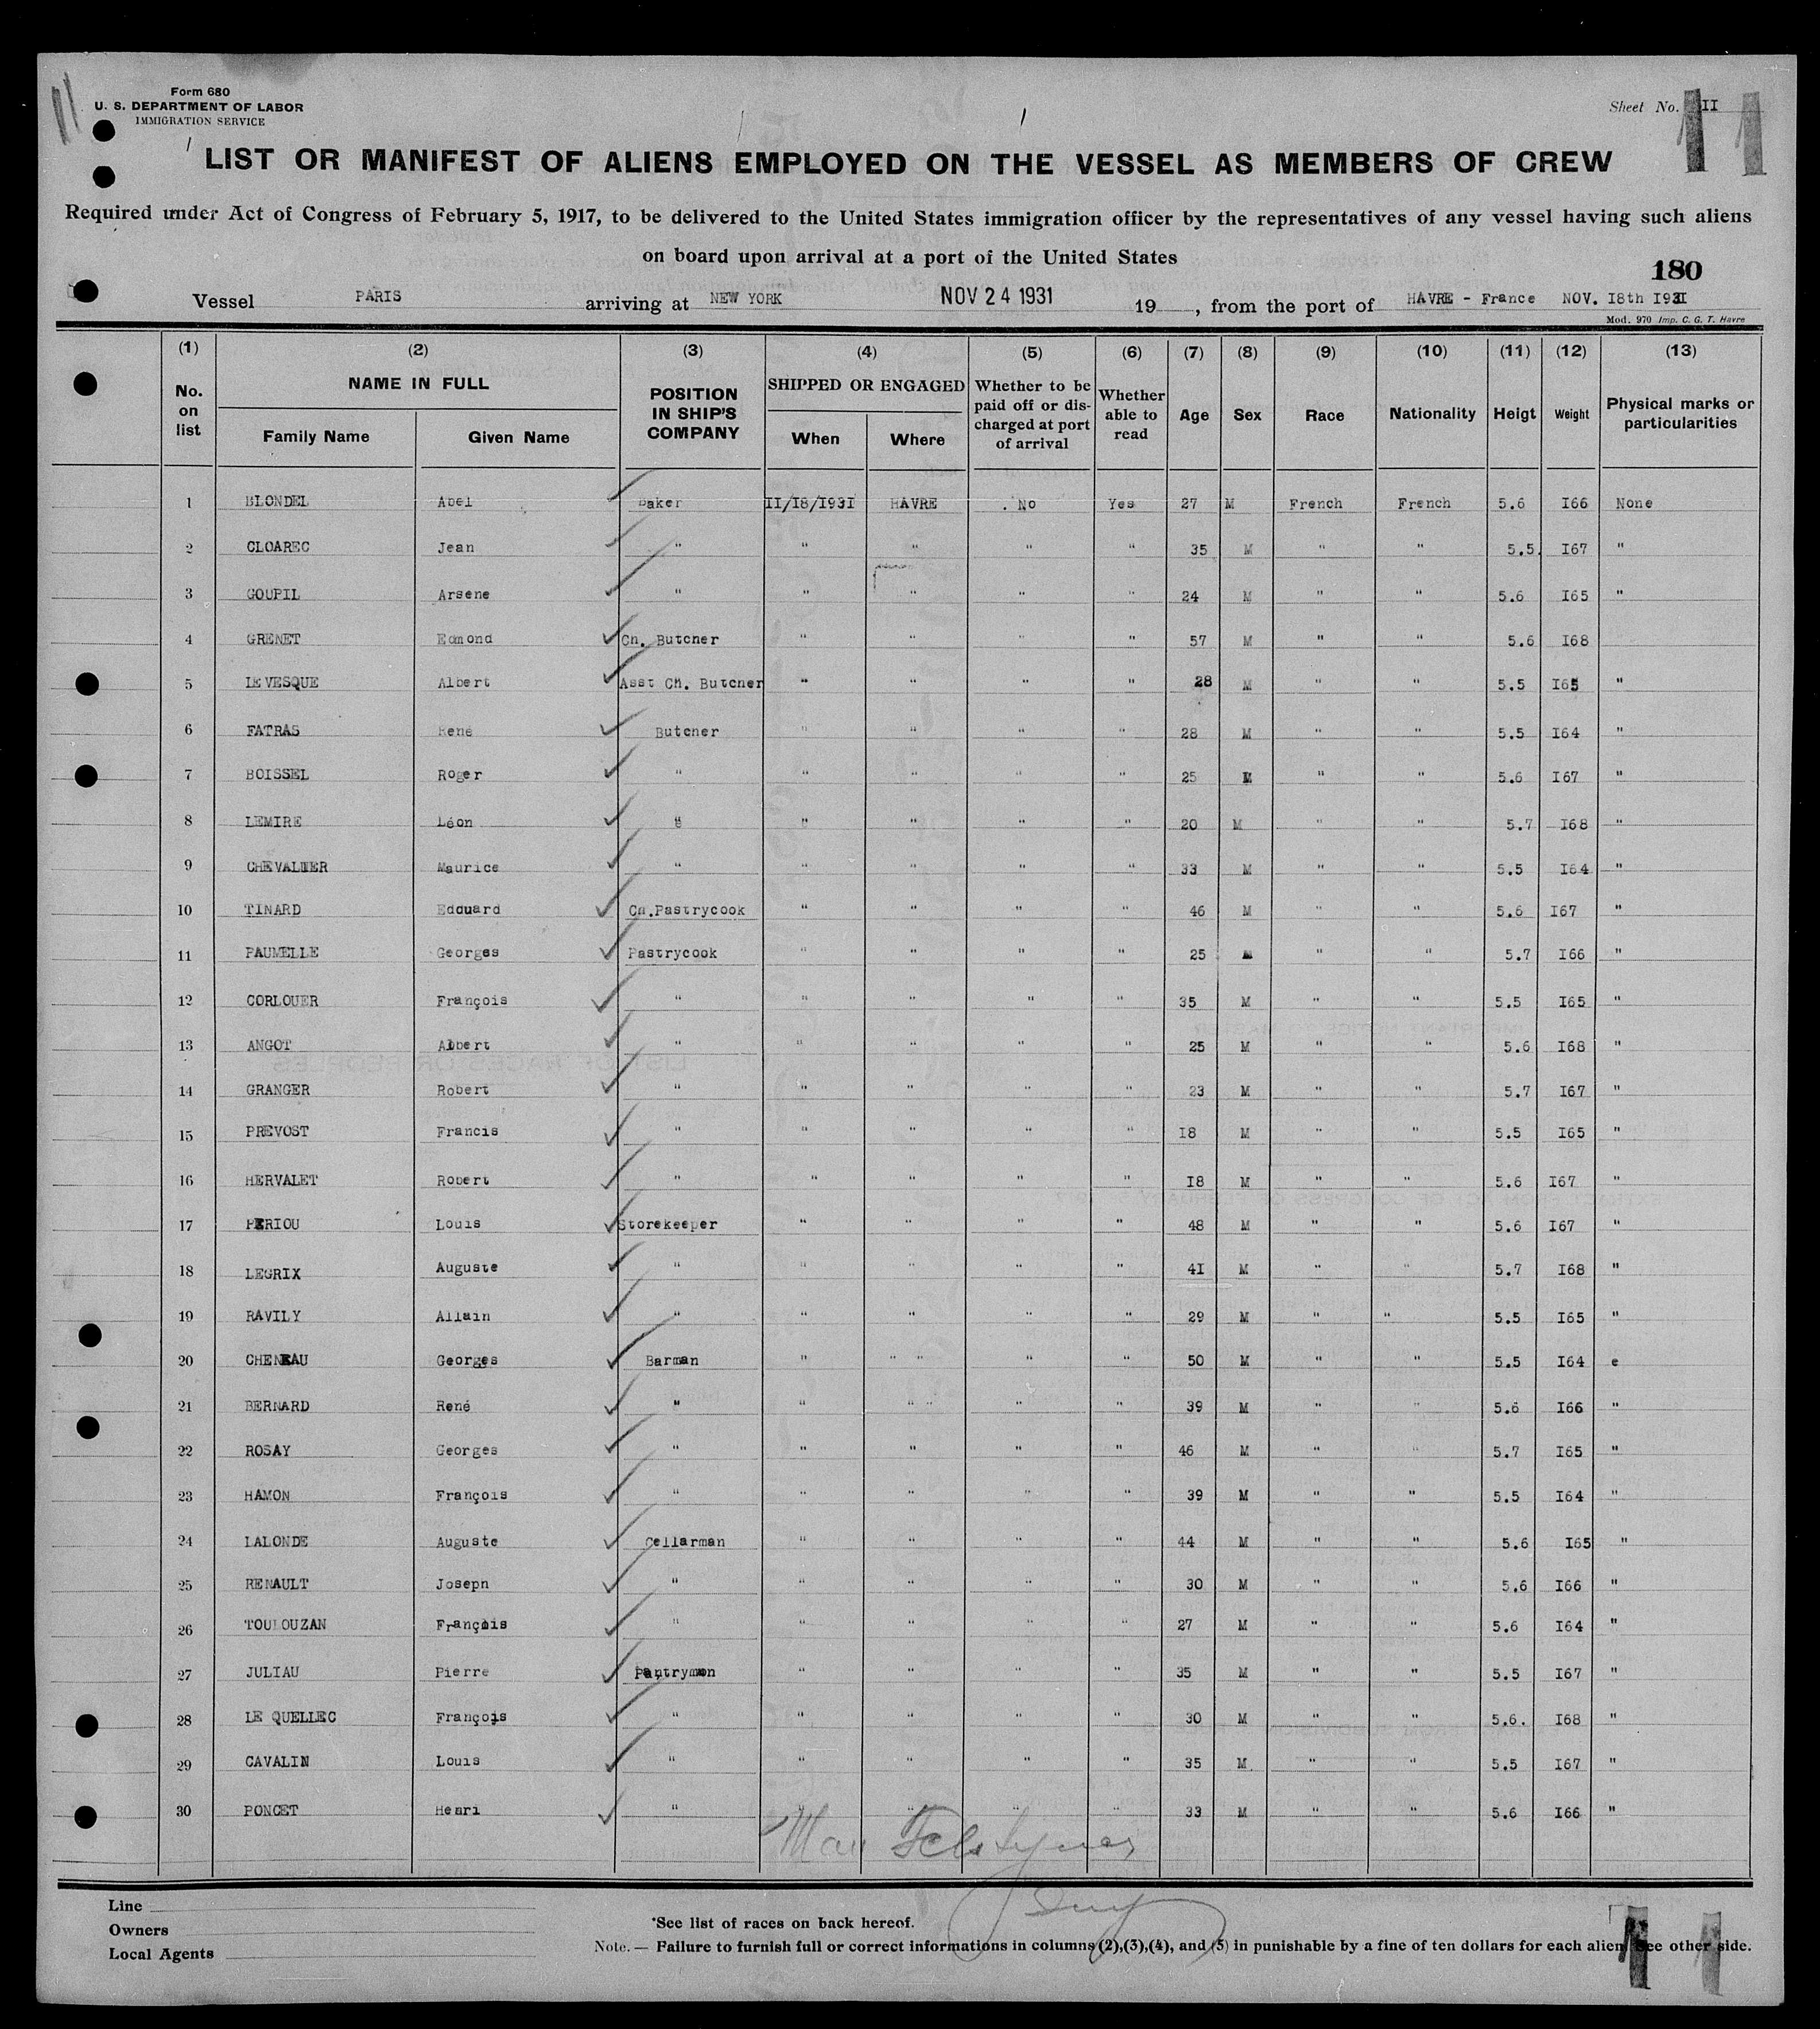 Form 680
U. S. DEPARTMENT OF LABOR
IMMIGRATION SERVICE
Sheet No. II
11
LIST OR MANIFEST OF ALIENS EMPLOYED ON THE VESSEL AS MEMBERS OF CREW
Required under Act of Congress of February 5, 1917, to be delivered to the United States immigration officer by the representatives of any vessel having such aliens
on board upon arrival at a port of the United States
180
Vessel PARIS arriving at NEW YORK NOV 24 1931 19 , from the port of HAVRE - France NOV. I8th I931
Mod. 970 Imp. C. G. T. Havre
(1) (2) (3) (4) (5) (6) (7) (8) (9) (10) (11) (12) (13)
No. on list NAME IN FULL Family Name Given Name POSITION IN SHIP'S COMPANY SHIPPED OR ENGAGED When Where Whether to be paid off or discharged at port of arrival Whether able to read Age Sex Race Nationality Heigt Weight Physical marks or particularities
1 BLONDEL Abel Baker II/I8/I93I HAVRE . No Yes 27 M French French 5.6 I66 None
2 CLOAREC Jean " " " " " 35 M " " 5.5. I67 "
3 GOUPIL Arsene " " " " " 24 M " " 5.6 I65 "
4 GRENET Edmond Ch. Butcher " " " " 57 M " " 5.6 I68
5 LEVESQUE Albert Asst Ch. Butcher " " " " 28 M " " 5.5 I65 "
6 FATRAS René Butcher " " " " 28 M " " 5.5 I64 "
7 BOISSEL Roger " " " " " 25 M " " 5.6 I67 "
8 LEMIRE Léon " " " " " 20 M " " 5.7 I68 "
9 CHEVALIER Maurice " " " " " 33 M " " 5.5 I64 "
10 TINARD Edouard Ch.Pastrycook " " " " 46 M " " 5.6 I67 "
11 PAUMELLE Georges Pastrycook " " " " 25 M " " 5.7 I66 "
12 CORLOUER François " " " " " 35 M " " 5.5 I65 "
13 ANGOT Albert " " " " " 25 M " " 5.6 I68 "
14 GRANGER Robert " " " " " 23 M " " 5.7 I67 "
15 PREVOST Francis " " " " " I8 M " " 5.5 I65 "
16 HERVALET Robert " " " " " I8 M " " 5.6 I67 "
17 PERIOU Louis Storekeeper " " " " 48 M " " 5.6 I67 "
18 LEGRIX Auguste " " " " " 4I M " " 5.7 I68 "
19 RAVILY Allain " " " " " 29 M " " 5.5 I65 "
20 CHENEAU Georges Barman " " " " " 50 M " " 5.5 I64 e
21 BERNARD René " " " " " " 39 M " " 5.6 I66 "
22 ROSAY Georges " " " " " 46 M " " 5.7 I65 "
23 HAMON François " " " " " 39 M " " 5.5 I64 "
24 LALONDE Auguste Cellarman " " " " 44 M " " 5.6 I65 "
25 RENAULT Joseph " " " " " 30 M " " 5.6 I66 "
26 TOULOUZAN François " " " " " 27 M " " 5.6 I64 "
27 JULIAU Pierre Pantryman " " " " 35 M " " 5.5 I67 "
28 LE QUELLEC François " " " " " 30 M " " 5.6. I68 "
29 CAVALIN Louis " " " " " 35 M " " 5.5 I67 "
30 PONCET Henri " " " " " 33 M " " 5.6 I66 "
Line
Owners
Local Agents
*See list of races on back hereof.
Note. — Failure to furnish full or correct informations in columns (2),(3),(4), and (5) in punishable by a fine of ten dollars for each alien. See other side.
11